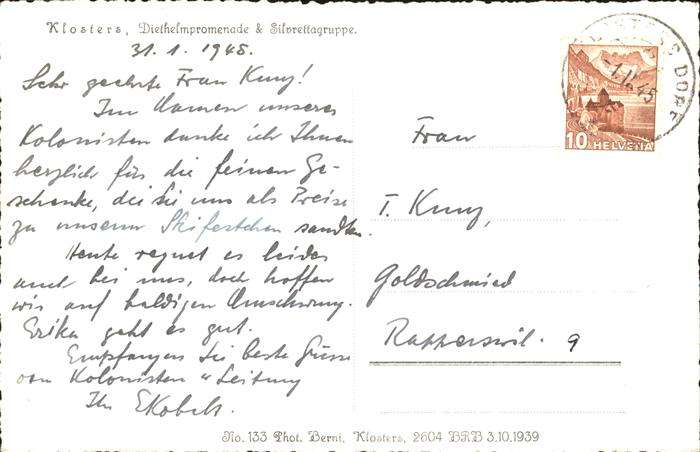 Klosters, Diethelmpromenade & Silvrettagruppe.
31.1.1945.
Sehr geehrte Frau Kunz!
Im Namen unserer
Kolonisten danke ich Ihnen
herzlich für die feinen Ge-
schenke, die sie uns als Preise
zu unserm Skifestchen sandten.
Heute regnet es leider
auch bei uns, doch hoffen
wir auf baldigen Umschwung.
Erika geht es gut.
Empfangen Sie beste Grüsse
von Kolonisten u Leitung
Ihr EKobelt.
KLOSTERS DORF
-1.II.45
10 HELVETIA
Frau
T. Kunz,
Goldschmied
Rapperswil. 9
No. 133 Phot. Berni, Klosters, 2604 BRB 3.10.1939